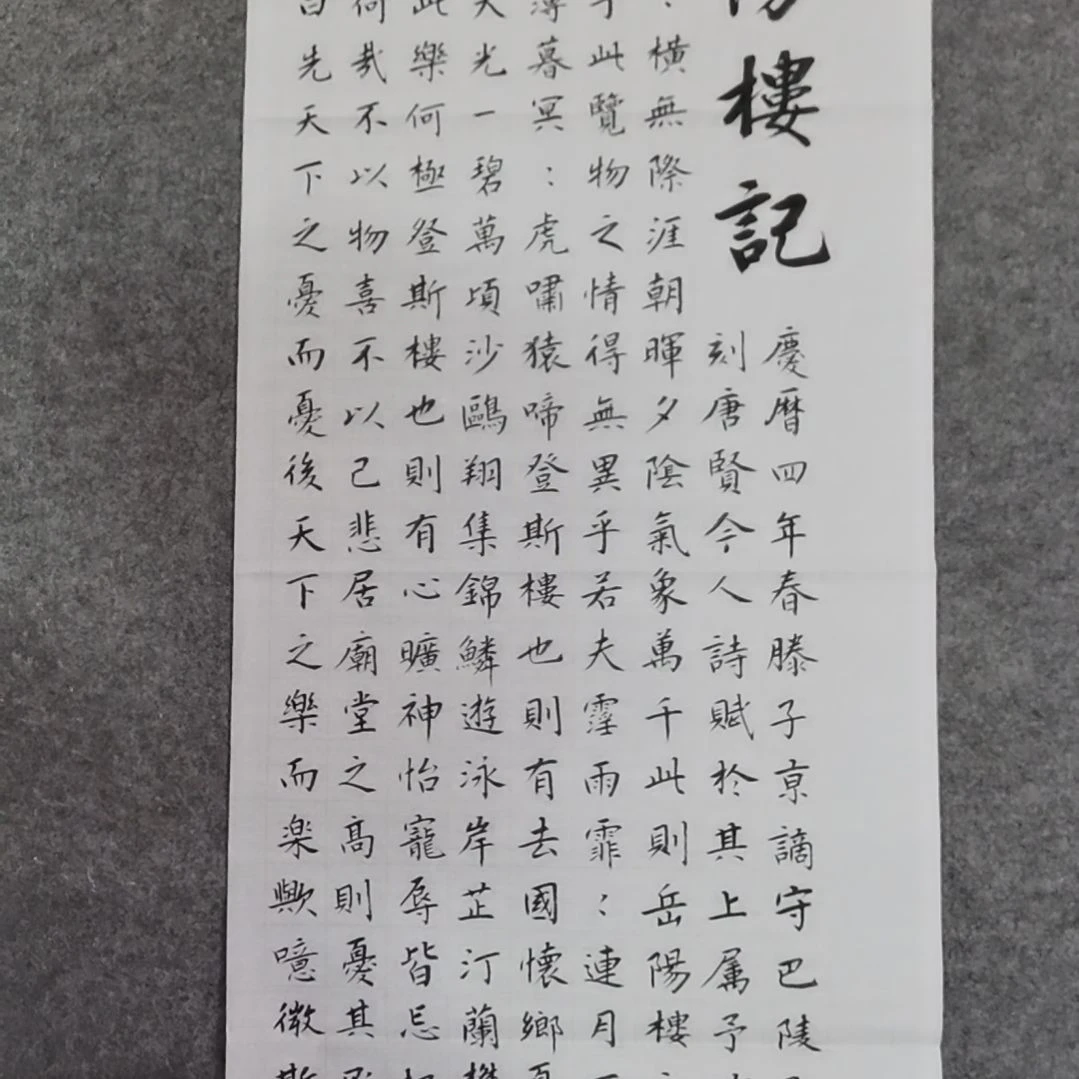 樓記
慶曆四年春滕子京謫守巴陵
刻唐賢今人詩賦於其上属予
橫無際涯朝暉夕陰氣象萬千此則岳陽樓
此覽物之情得無異乎若夫霪雨霏：連月
薄暮冥：虎嘯猿啼登斯樓也則有去國懷鄉
天光一碧萬頃沙鷗翔集錦鱗遊泳岸芷汀蘭
此樂何極登斯樓也則有心曠神怡寵辱皆忘
何哉不以物喜不以己悲居廟堂之高則憂其
先天下之憂而憂後天下之樂而楽歟噫微斯